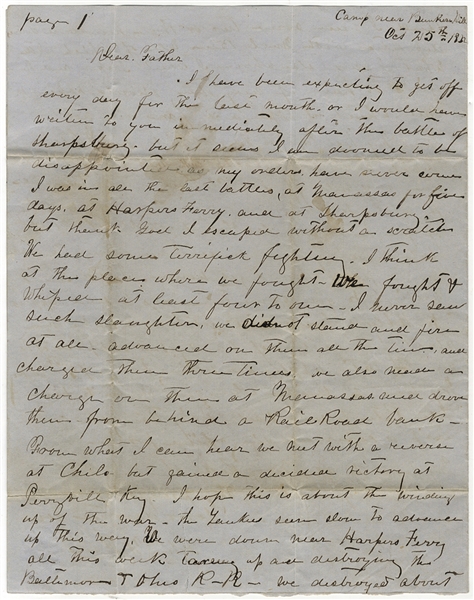 page 1
Camp near Bunkers Hill
Oct 25th 1862
Dear Father
I have been expecting to get off
every day for the last month or I would have
written to you immediately after the battles of
Sharpsburg. but it seems I am doomed to be
disappointed as my orders have never come
I was in all the last battles, at Manassas for five
days, at Harpers Ferry. and at Sharpsburg.
but thank God I escaped without a scratch
We had some terrifick fighting. I think
at the place where we fought We fought &
whiped at least four to one - I never saw
such slaughter, we did not stand and fire
at all - advanced on them all the time and
charged them three times we also made a
charge on them at Manassas and drove
them from behind a Rail Road bank -
From what I can hear we met with a reverse
at but gained a decided victory at
Perryvill Key. I hope this is about the winding
up of the war - the Yankees seem slow to advance
up this way, We were down near Harpers Ferry
all this week up and destroying the
Baltimore & Ohio R-R - we destroyed about